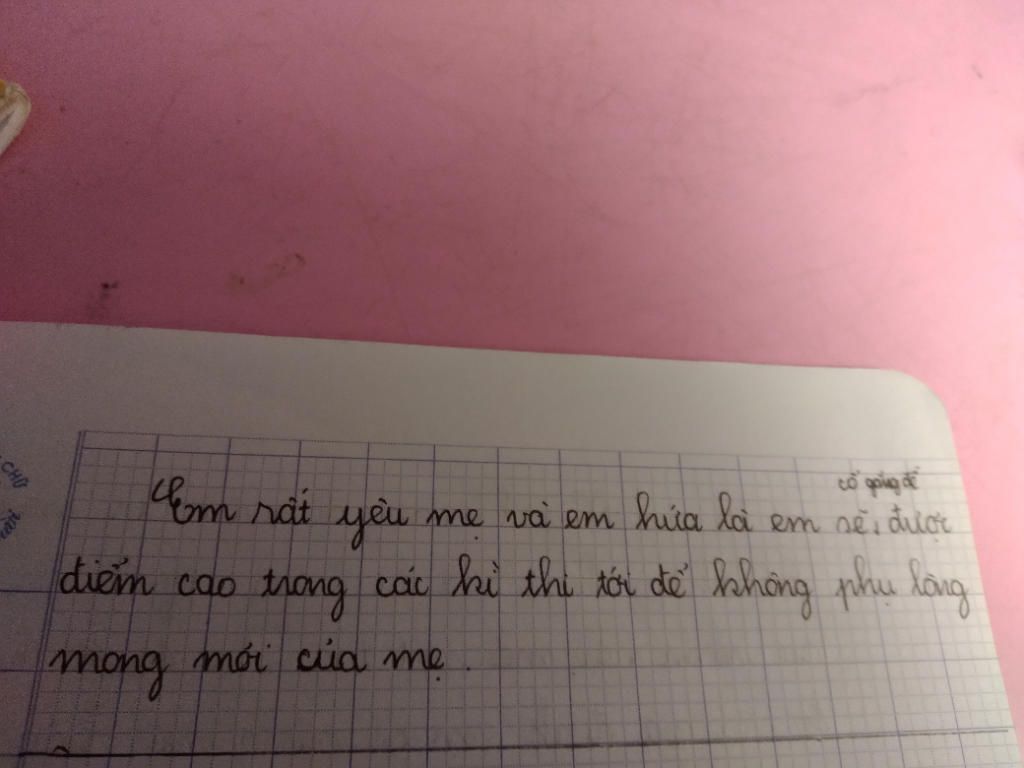 CHỮ
cố gắng để
Em rất yêu mẹ và em hứa là em sẽ, được
điểm cao trong các kì thi tới để không phụ lòng
mong mới của mẹ.